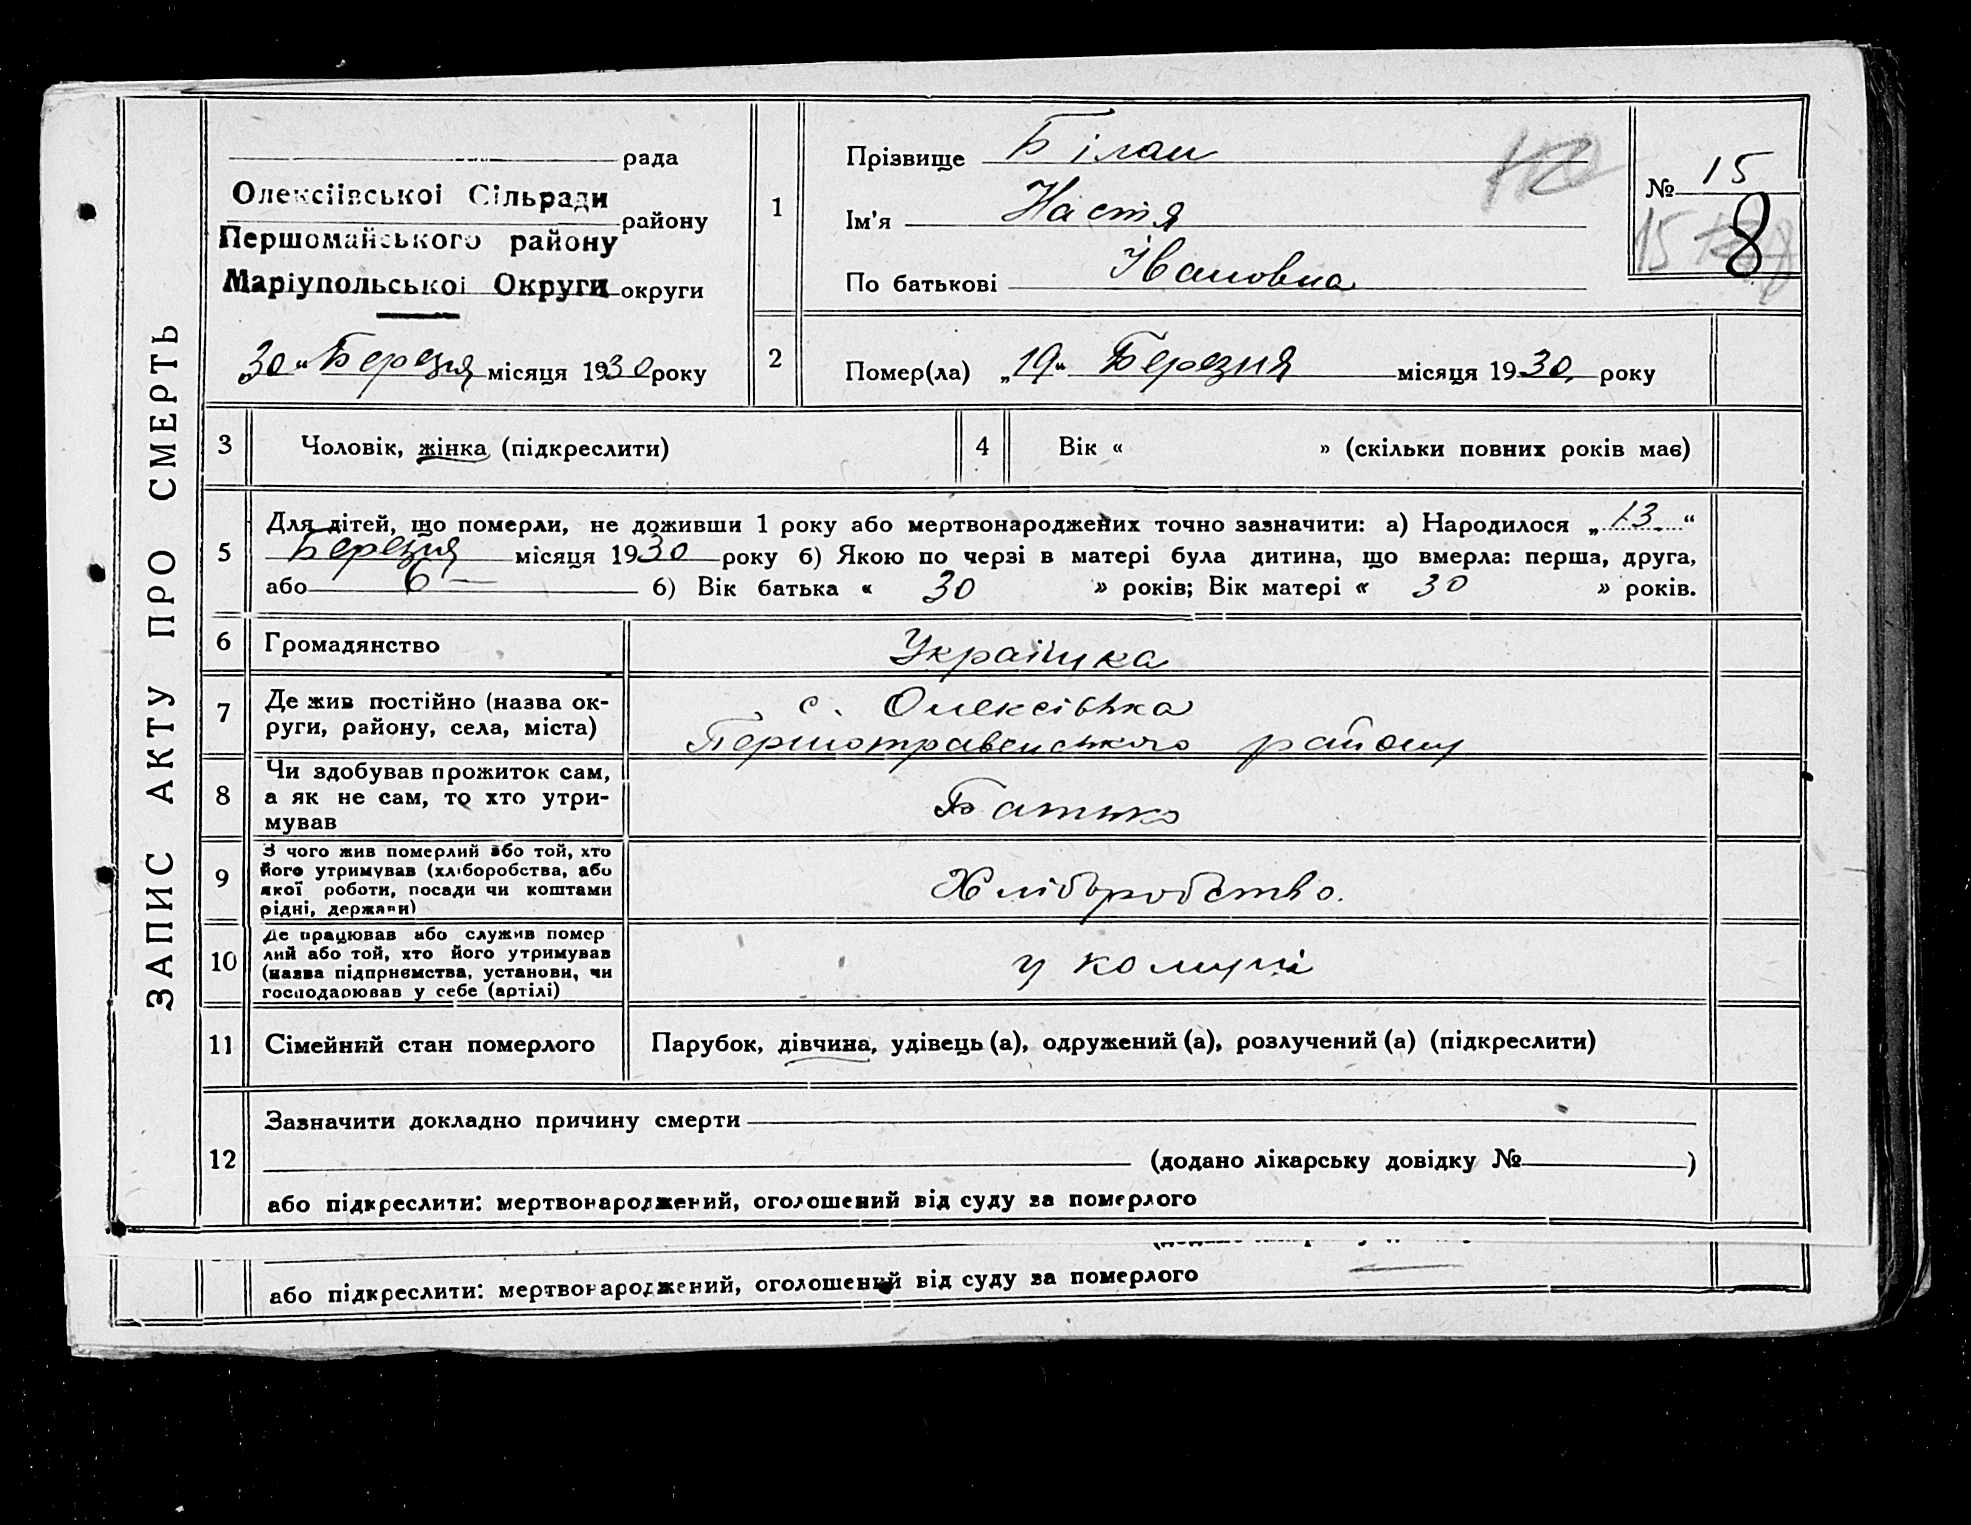 ЗАПИС АКТУ ПРО СМЕРТЬ
рада
Олексіївської Сільради
району
Першомайського району
Маріупольської Округи округи
30 " Березня місяця 1930 року
1
Прізвище Білан
Ім'я Настя
По батькові Івановна
№ 15
15
8
2
Помер(ла) „19" Березня місяця 1930 року
3 Чоловік, жінка (підкреслити)
4 Вік « » (скільки повних років має)
5
Для дітей, що померли, не доживши 1 року або мертвонароджених точно зазначити: а) Народилося „13"
Березня місяця 1930 року б) Якою по черзі в матері була дитина, що вмерла: перша, друга,
або 6 — б) Вік батька « 30 » років; Вік матері « 30 » років.
6 Громадянство Українка
7 Де жив постійно (назва ок-
руги, району, села, міста)
с. Олексієвка
Першотравенського району
8 Чи здобував прожиток сам,
а як не сам, то хто утри-
мував
Батько
9 З чого жив померлий або той, хто
його утримував (хліборобства, або
якої роботи, посади чи коштами
рідні, держави)
Хліборобство.
10 Де працював або служив помер
лий або той, хто його утримував
(назва підприємства, установи, чи
господарював у себе (артілі)
у комуні
11 Сімейний стан померлого Парубок, дівчина, удівець (а), одружений (а), розлучений (а) (підкреслити)
12 Зазначити докладно причину смерти
(додано лікарську довідку № )
або підкреслити: мертвонароджений, оголошений від суду за померлого
або підкреслити: мертвонароджений, оголошений від суду за померлого